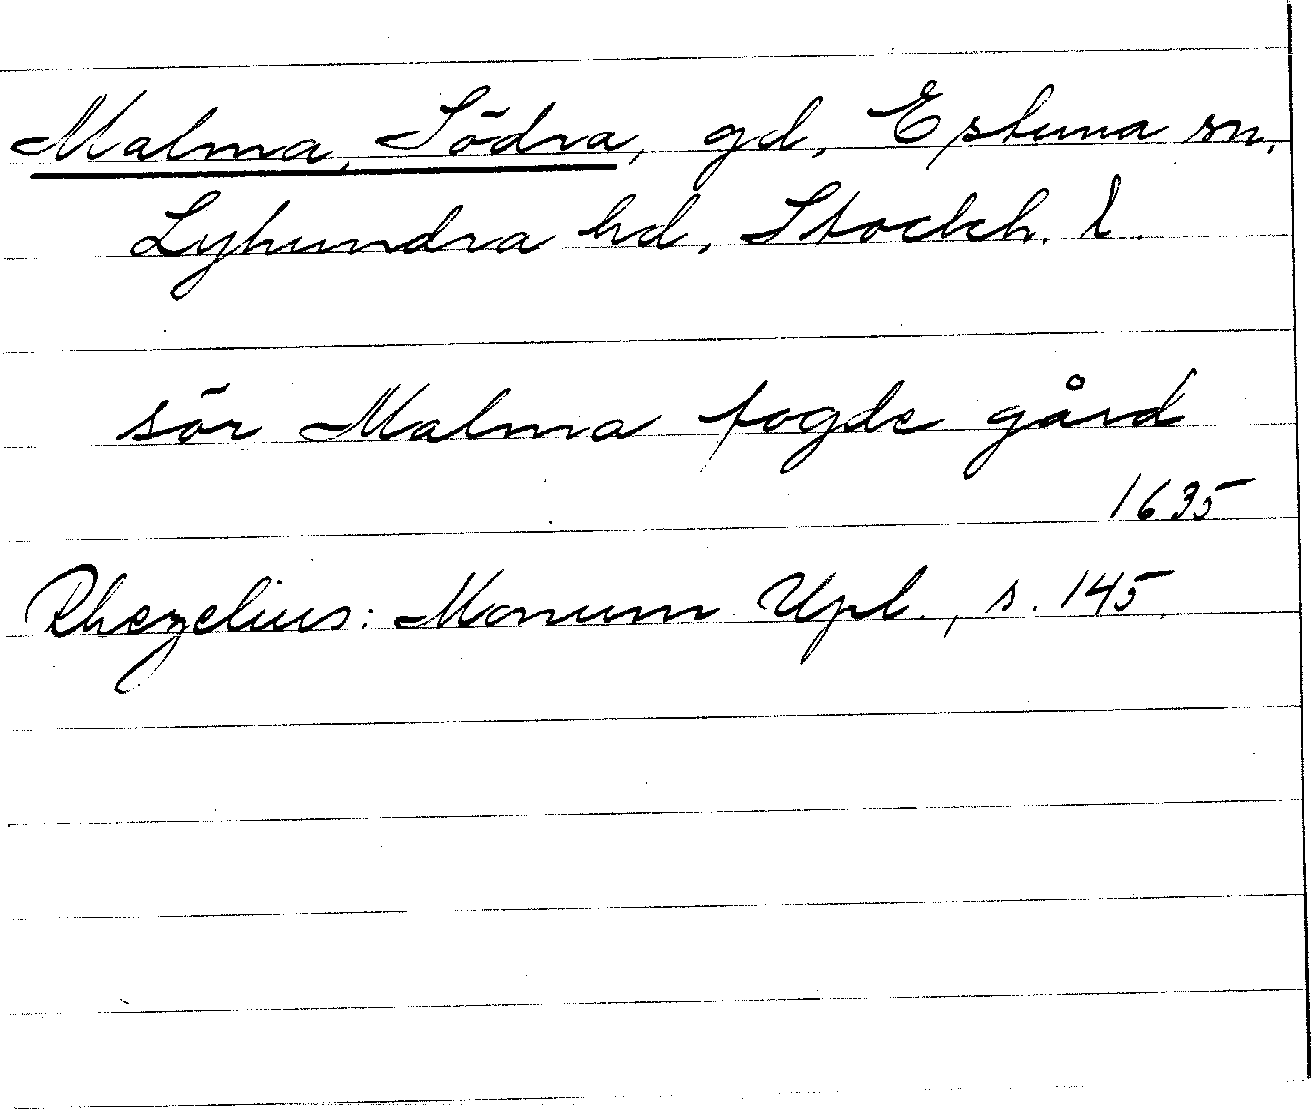 Malma, Södra, gd, Estuna sn,
Lyhundra hd, Stockh. l.
sör Malma fogde gård
1635
Rhezelius: Monum Upl., s. 145.